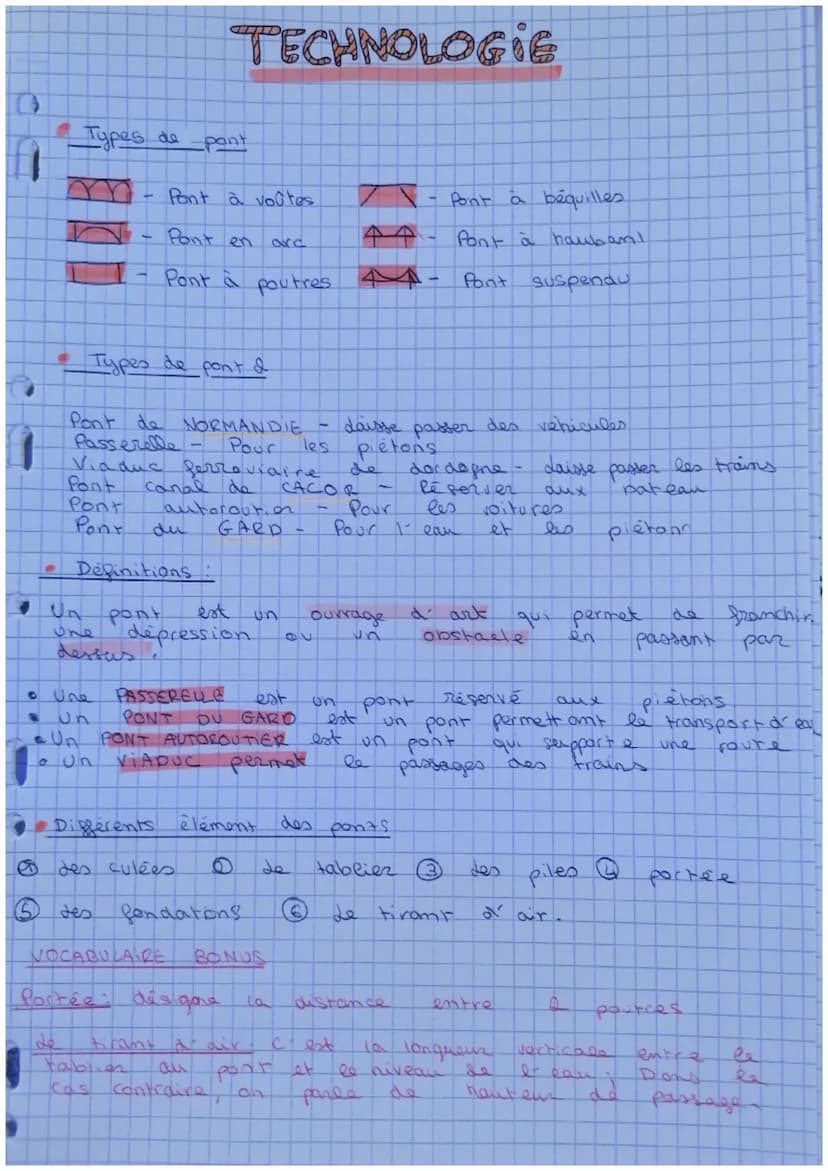 TECHNOLOGiE
Types de pont
- Pont à voûtes
- Pont à béquilles
- Pont en arc
- Pont à haubans
- Pont à poutres
- Pont suspendu
Types de pont 2
Pont de NORMANDIE - Laisse passer des véhicules
Passerelle - Pour les piétons
Viaduc ferroviaire de dordogne - Laisse passer les trains
Pont canal de CACOR - Réserver aux bateau
Pont autoroutier - Pour les voitures
Pont du GARD - Pour l'eau et les piétons
Définitions :
Un pont est un ouvrage d'art qui permet de franchir
une dépression ou un obstacle en passant par
dessus.
Une PASSERELLE est un pont réservé aux piétons
Un PONT DU GARD est un pont permettant le transport d'eau
Un PONT AUTOROUTIER est un pont qui supporte une route
Un ViADUC permet le passages des trains
Différents élément des ponts
② des culées ① Le tablier ③ des piles ④ portée
⑤ des fondatons ⑥ Le tirant d'air.
VOCABULAiRE BONUS
Portée : désigne la distance entre 2
Le tirant d'air : C'est la longueur verticale entre le
tablier du pont et le niveau de l'eau ; Dans le
cas contraire, on parle de hauteur de passage.